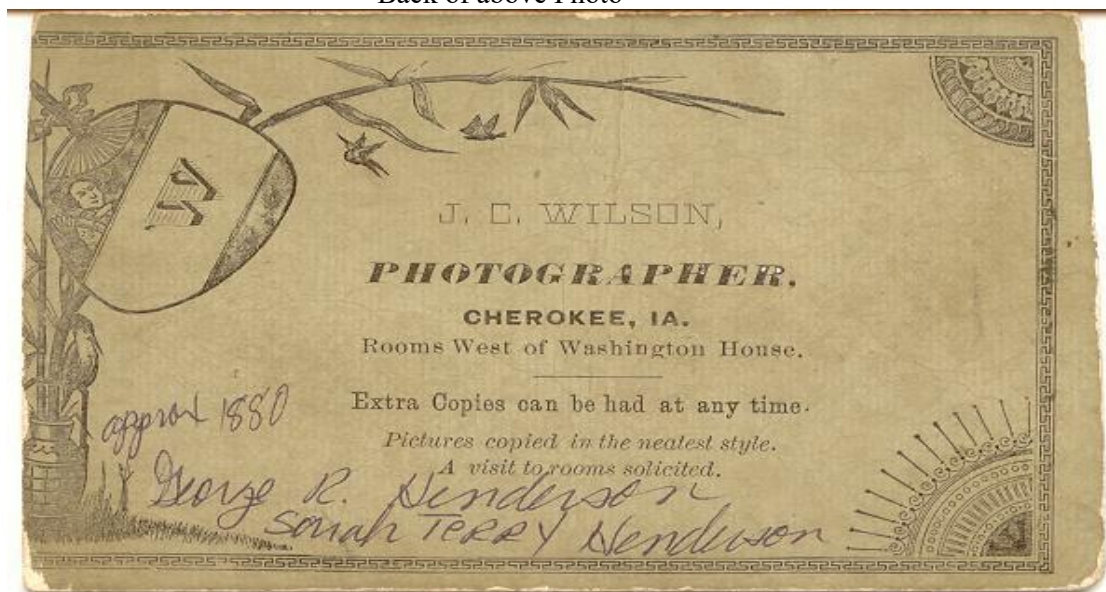 Back of above Photo
W
J. C. WILSON,
PHOTOGRAPHER.
CHEROKEE, IA.
Rooms West of Washington House.
Extra Copies can be had at any time.
Pictures copied in the neatest style.
A visit to rooms solicited.
approx 1880
George R. Henderson
Sarah TERRY Henderson